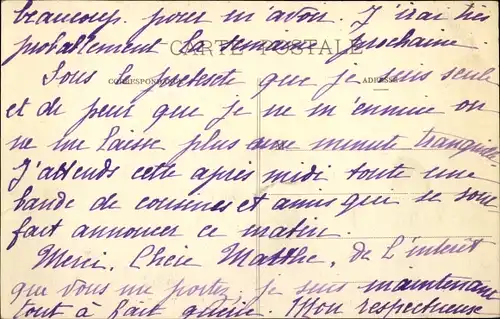 beaucoup pour m'avoir. J'irai très
probablement la semaine prochaine.
CARTE POSTALE
Sous le prétexte que je suis seule
CORRESPONDANCE
ADRESSE
et de peur que je ne m'ennuie on
ne me laisse plus une minute tranquille
J'attends cette après midi toute une
bande de cousines et amis qui se sont
fait annoncer ce matin.
Merci, Chère Marthe, de l'intérêt
que vous me portez, je suis maintenant
tout à fait guérie. Mon respectueux